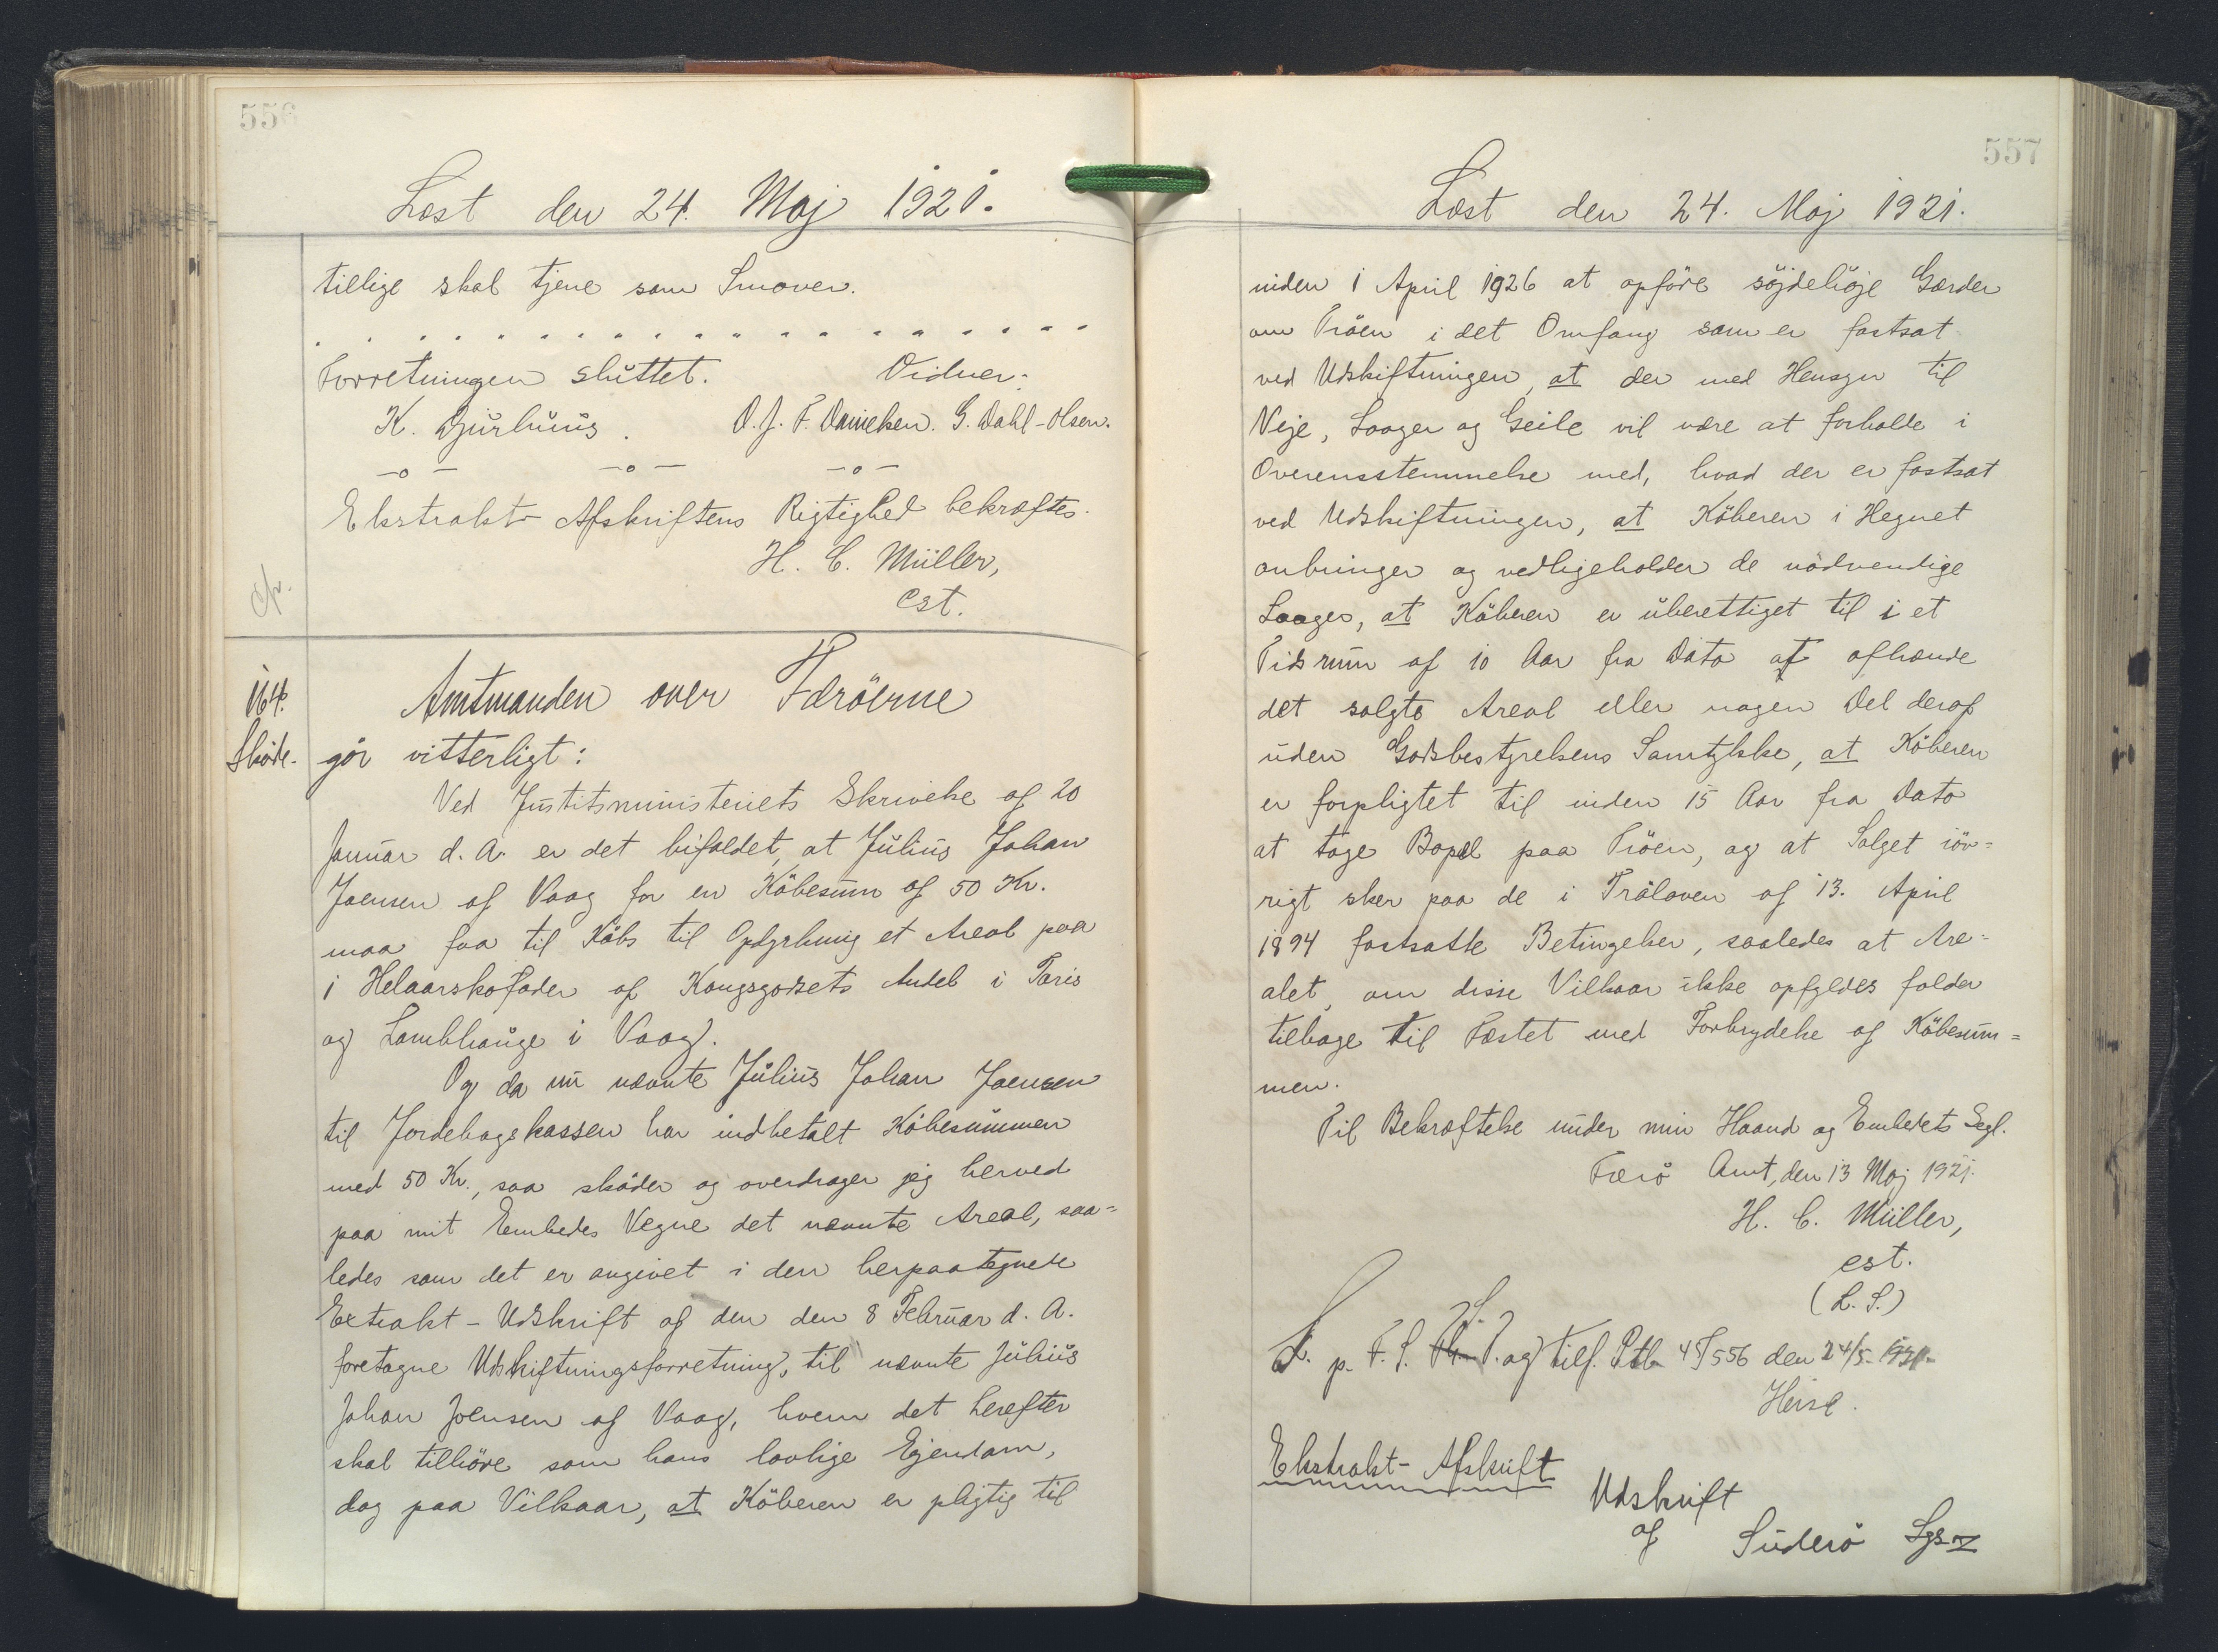 556
Læst den 24. Maj 1921.
tillige skal tjene som Smover.
Forretningen sluttet. Vidner:
K. Djurhuus. D. J. F. Danielsen. G. Dahl-Olsen.
—o— —o— —o—
Ekstrakt-Afskriftens Rigtighed bekræftes.
H. C. Müller,
cst.
164.
Skøde.
Amtmanden over Færöerne
gör vitterligt:
Ved Justitsministeriets Skrivelse af 20
Januar d. A. er det bifaldet, at Julius Johan
Joensen af Vaag for en Köbesum af 50 Kr.
maa faa til Köbs til Opdyrkning et Areal paa
1 Helaarskofoder af Kongsgodsets Andel i Toris
og Lambhauge i Vaag.
Og da nu nævnte Julius Johan Joensen
til Jordebogskassen har indbetalt Köbesummen
med 50 Kr., saa sköder og overdrager jeg herved
paa mit Embedes Vegne det nævnte Areal, saa=
ledes som det er angivet i den herpaategnede
Extrakt-Udskrift af den den 8 Februar d. A.
foretagne Udskiftningsforretning, til nævnte Julius
Johan Joensen af Vaag, hvem det herefter
skal tilhöre som hans lovlige Ejendom,
dog paa Vilkaar, at Köberen er pligtig til
557
Læst den 24. Maj 1921.
inden 1 April 1926 at opföre söjdehöje Gærder
om Tröen i det Omfang som er fastsat
ved Udskiftningen, at der med Hensyn til
Veje, Laager og Geile vil være at forholde i
Overensstemmelse med, hvad der er fastsat
ved Udskiftningen, at Köberen i Hegnet
anbringer og vedligeholder de nödvendige
Laager, at Köberen er uberettiget til i et
Tidsrum af 10 Aar fra Dato at afhænde
det solgte Areal eller nogen Del deraf
uden Godsbestyrelsens Samtykke, at Köberen
er forpligtet til inden 15 Aar fra Dato
at tage Bopæl paa Tröen, og at Salget iöv=
rigt sker paa de i Tröloven af 13. April
1894 fastsatte Betingelser, saaledes at Are=
alet, om disse Vilkaar ikke opfyldes falder
tilbage til Fæstet med Forbrydelse af Köbesum=
men.
Til Bekræftelse under min Haand og Embedets Segl.
Færö Amt, den 13 Maj 1921.
H. C. Müller,
cst.
(L. S.)
L. p. F. S. P. og tilf. Ptb 45/556 den 24/5-1921-
Heise.
Ekstrakt-Afskrift
Udskrift
af Suderö